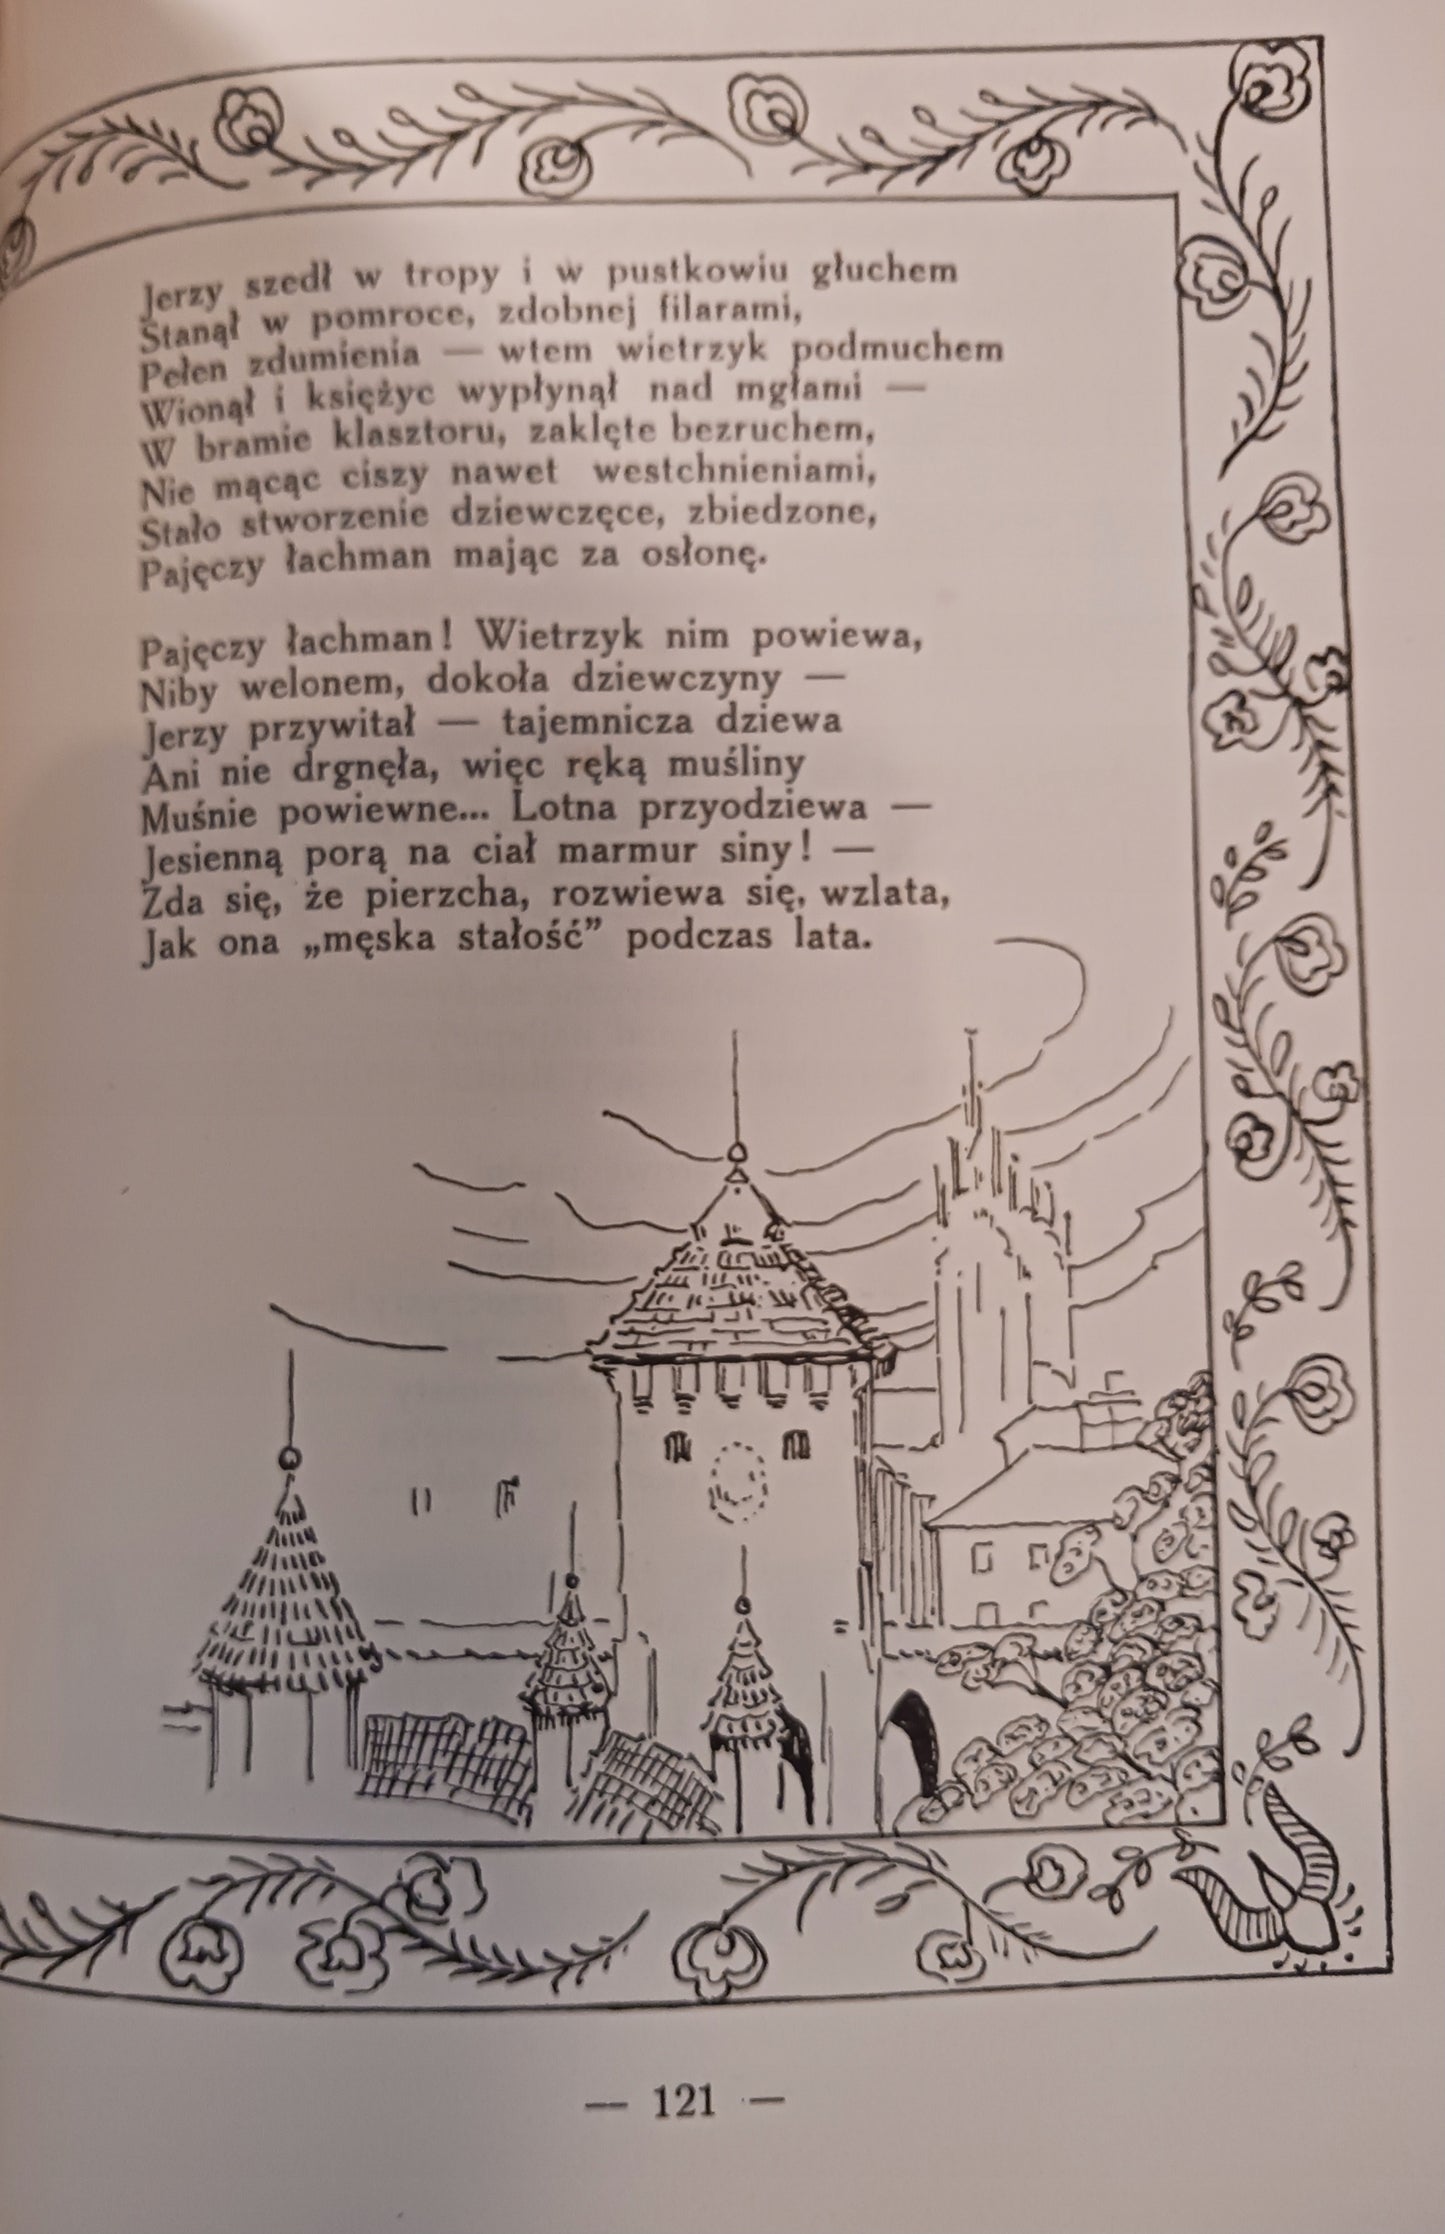 Jerzy szedł w tropy i w pustkowiu głuchem
Stanął w pomroce, zdobnej filarami,
Pełen zdumienia — wtem wietrzyk podmuchem
Wionął i księżyc wypłynął nad mgłami —
W bramie klasztoru, zaklęte bezruchem,
Nie mącąc ciszy nawet westchnieniami,
Stało stworzenie dziewczęce, zbiedzone,
Pajęczy łachman mając za osłonę.
Pajęczy łachman! Wietrzyk nim powiewa,
Niby welonem, dokoła dziewczyny —
Jerzy przywitał — tajemnicza dziewa
Ani nie drgnęła, więc ręką muśliny
Muśnie powiewne... Lotna przyodziewa —
Jesienną porą na ciał marmur siny! —
Zda się, że pierzcha, rozwiewa się, wzlata,
Jak ona „męska stałość” podczas lata.
— 121 —